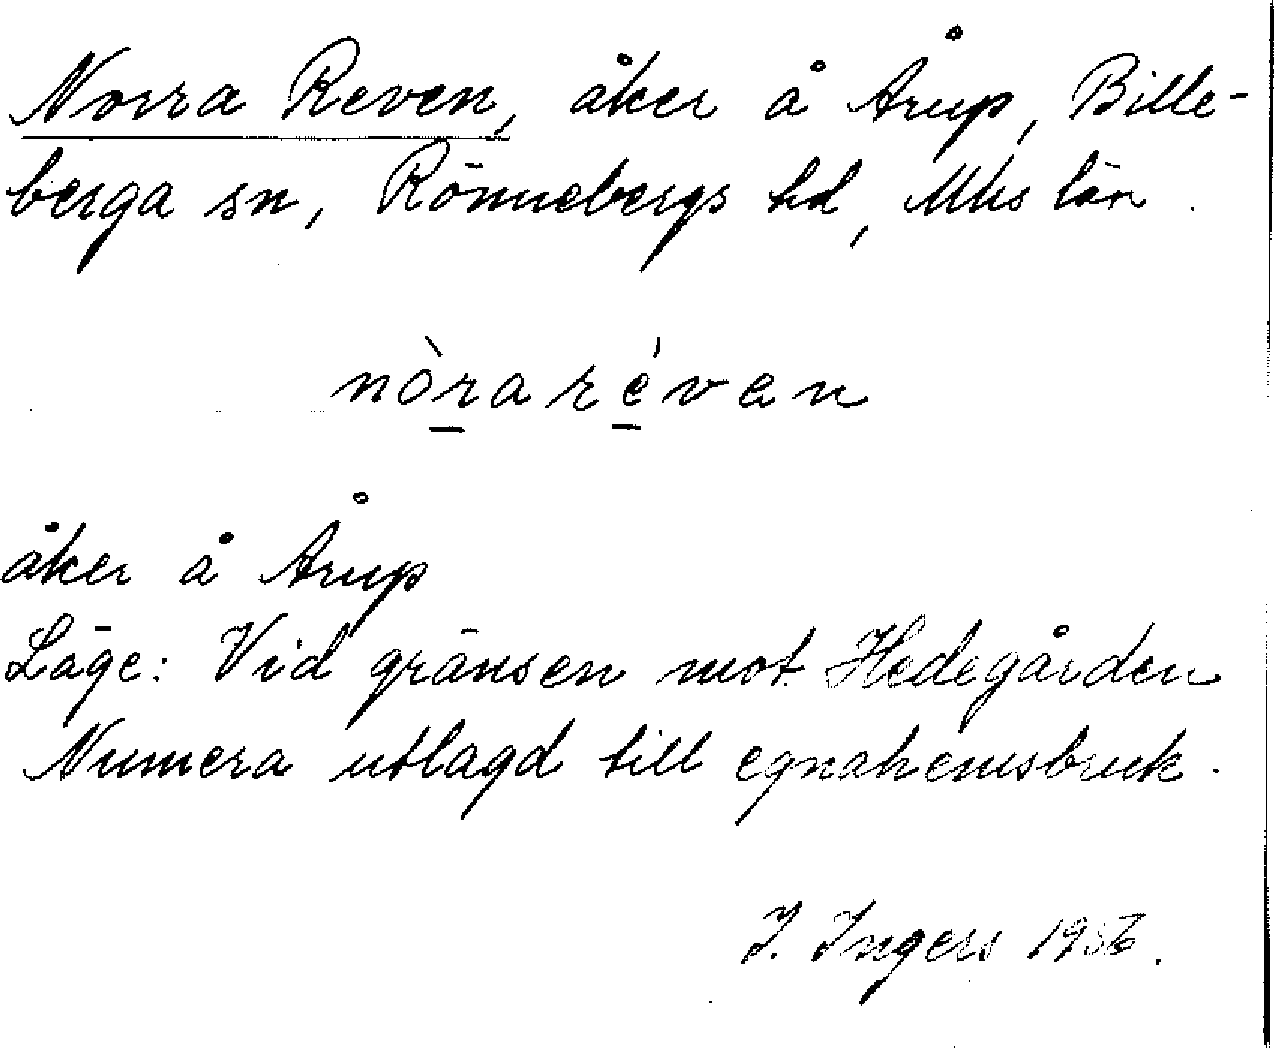 Norra Reven, åker å Årup, Bille-
berga sn, Rönnebergs hd, Mhs län.
nòra réven
åker å Årup
Läge: Vid gränsen mot Hedegården
Numera utlagd till egnahemsbruk.
I. Ingers